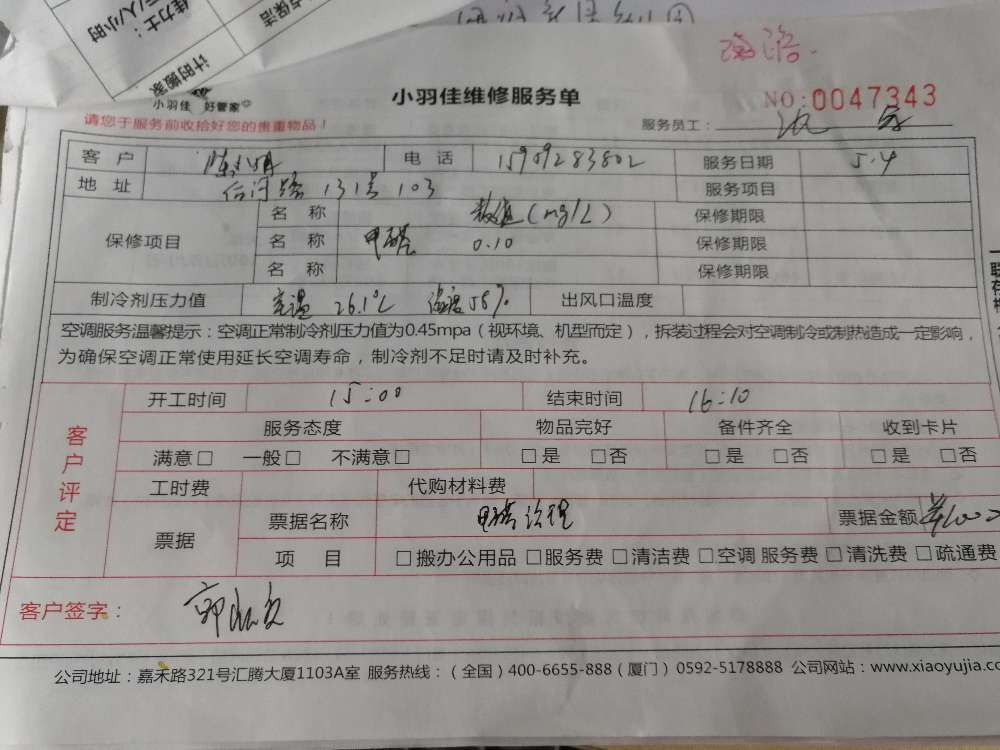 佳力士：
计时搬家
小羽佳 好管家
小羽佳维修服务单
NO:0047343
请您于服务前收拾好您的贵重物品！
服务员工：
客户 电话 15909283802 服务日期 5.4
地址 后河路131号103 服务项目
保修项目
名称 数值(mg/L) 保修期限
名称 甲醛 0.10 保修期限
名称 保修期限
制冷剂压力值 室温 26.1℃ 湿度58% 出风口温度
空调服务温馨提示：空调正常制冷剂压力值为0.45mpa（视环境、机型而定），拆装过程会对空调制冷或制热造成一定影响，
为确保空调正常使用延长空调寿命，制冷剂不足时请及时补充。
客户评定
开工时间 15:00 结束时间 16:10
服务态度 物品完好 备件齐全 收到卡片
满意□ 一般□ 不满意□ □是 □否 □是 □否 □是 □否
工时费 代购材料费
票据
票据名称 甲醛治理 票据金额
项目 □搬办公用品 □服务费 □清洁费 □空调服务费 □清洗费 □疏通费
客户签字：
公司地址：嘉禾路321号汇腾大厦1103A室 服务热线：（全国）400-6655-888（厦门）0592-5178888 公司网站：www.xiaoyujia.co